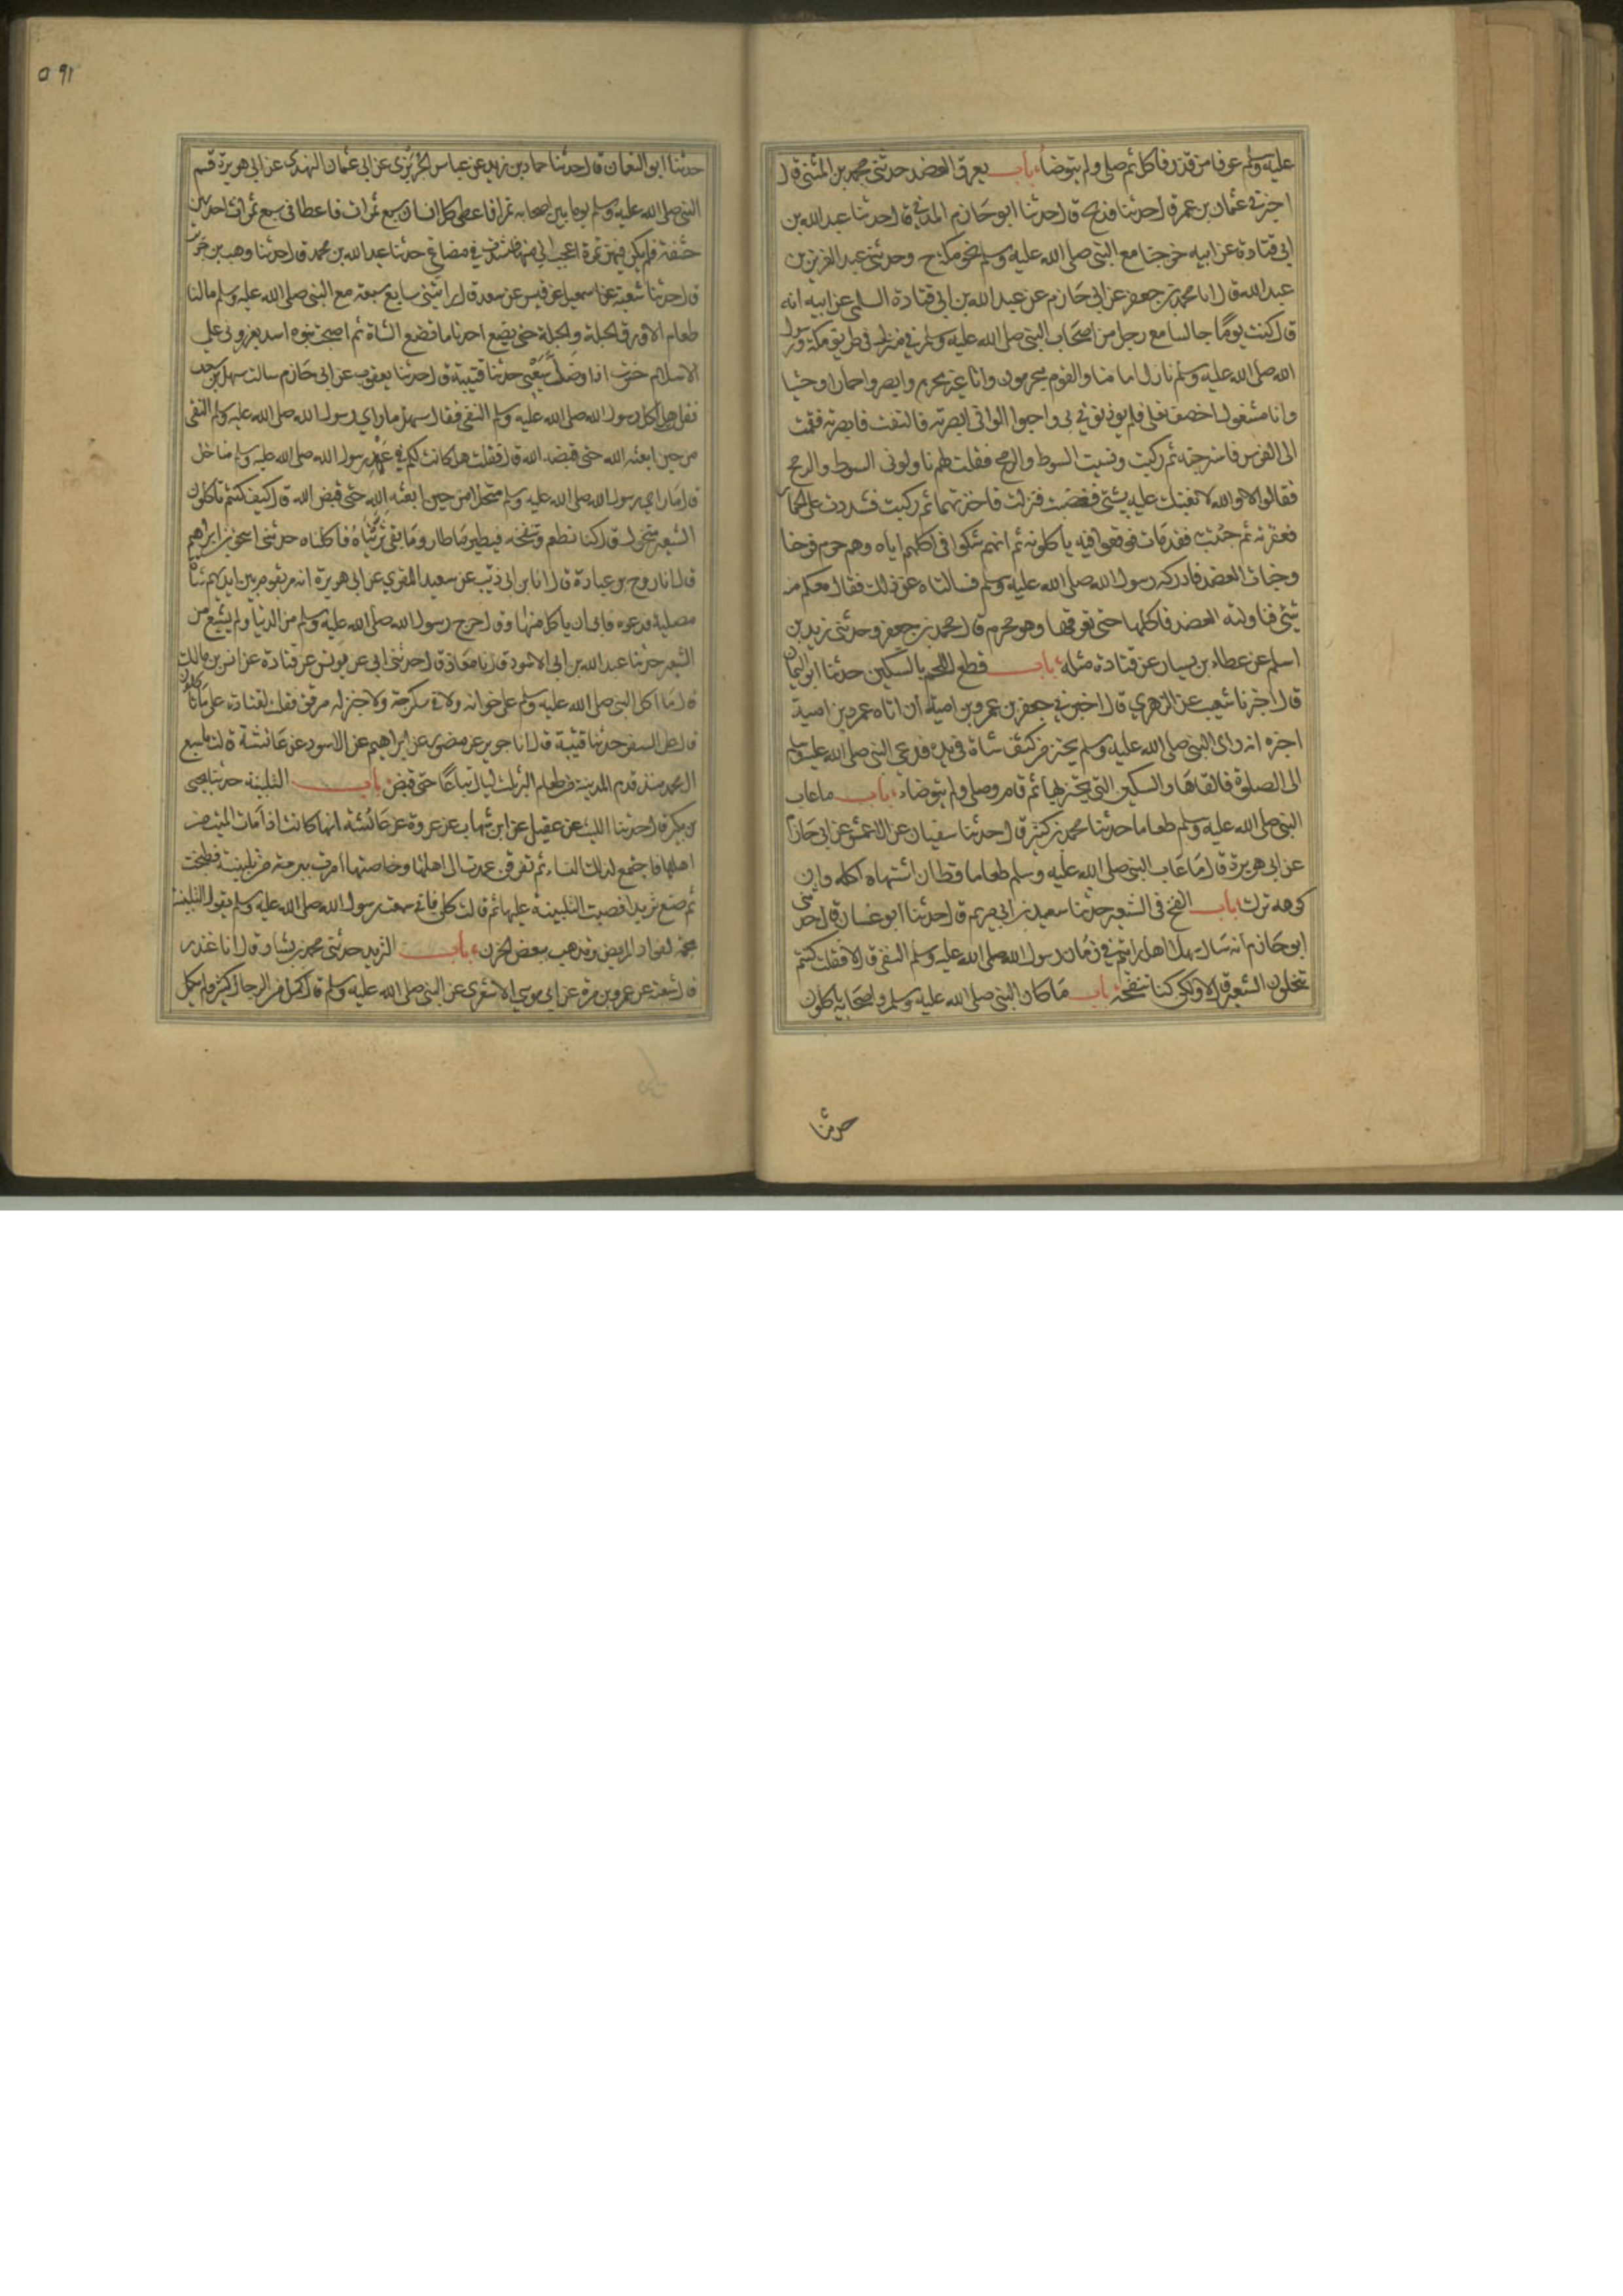 عليه وسلم عرفا من قدر فاكل ثم صلى ولم يتوضا باب يعرق العضد حدثنى محمد بن المثنى قال
اخبرني عثمان بن عمر قال حدثنا فليح قال حدثنا ابو حازم المدني قال حدثنا عبد الله بن
ابي قتادة عن ابيه خرجنا مع النبي صلى الله عليه وسلم نحو مكة ح وحدثنى عبد العزيز بن
عبد الله قال انا محمد بن جعفر عن ابي حازم عن عبد الله بن ابي قتادة السلمى عن ابيه انه
قال كنت يوما جالسا مع رجل من اصحاب النبي صلى الله عليه وسلم في منزل في طريق مكة ورسول
الله صلى الله عليه وسلم نازل امامنا والقوم محرمون وانا غير محرم وابصروا حمارا وحشيا
وانا مشغول اخصف نعلى فلم يوذنوني بي واحبوا لو انى ابصرته فالتفت فابصرته فقمت
الى الفرس فاسرجته ثم ركبت ونسيت السوط والرمح فقلت لهم ناولونى السوط والرمح
فقالوا لا والله لا نعينك عليه بشئ فغضبت فنزلت فاخذتهما ثم ركبت فشددت على الحمار
فعقرته ثم جئت به فقد مات فوقعوا فيه ياكلونه ثم انهم شكوا فى اكلهم اياه وهم حرم فرحنا
وخبات العضد فادركه رسول الله صلى الله عليه وسلم فسالناه عن ذلك فقال معكم منه
شئ فناولته العضد فاكلها حتى تعرقها وهو محرم قال محمد بن جعفر وحدثنى زيد بن
اسلم عن عطاء بن يسار عن قتادة مثله باب قطع اللحم بالسكين حدثنا ابو اليمان
قال اخبرنا شعيب عن الزهري قال اخبرني جعفر بن عمرو بن امية ان اباه عمرو بن امية
اخبره انه راى النبي صلى الله عليه وسلم يحتز من كتف شاة في يده فدعى النبي صلى الله عليه وسلم
الى الصلوة فالقاها والسكين التى يحتز بها ثم قام وصلى ولم يتوضاء باب ما عاب
النبي صلى الله عليه وسلم طعاما حدثنا محمد بن كثير قال حدثنا سفيان عن الاعمش عن ابي حازم
عن ابي هريرة قال ما عاب النبي صلى الله عليه وسلم طعاما قط ان اشتهاه اكله وان
كرهه ترك باب النفخ في الشعير حدثنا سعيد بن ابي مريم قال حدثنا ابو غسان قال حدثنى
ابو حازم انه سال سهلا هل رايتم في زمان رسول الله صلى الله عليه وسلم النقى قال لا فقلت كنتم
تنخلون الشعير قال لا ولكن كنا ننفخه باب ما كان النبي صلى الله عليه وسلم واصحابه ياكلون
حدثنا
٥٩١
حدثنا ابو النعمان قال حدثنا حماد بن زيد عن عباس الجريري عن ابي عثمان النهدي عن ابي هريرة قسم
النبي صلى الله عليه وسلم يوما بين اصحابه تمرا فاعطى كل انسان سبع تمرات فاعطانى سبع تمرات احديهن
حشفة فلم يكن فيهن تمرة اعجب الي منها شدت في مضاغى حدثنا عبد الله بن محمد قال حدثنا وهب بن جرير
قال حدثنا شعبة عن اسمعيل عن قيس عن سعد قال رايتنى سابع سبعة مع النبي صلى الله عليه وسلم ما لنا
طعام الا ورق الحبلة والحبلة حتى يضع احدنا ما تضع الشاة ثم اصبحت بنو اسد يعزرونى على
الاسلام خسرت اذا وضل سعيي حدثنا قتيبة قال حدثنا يعقوب عن ابى حازم سالت سهل بن سعد
فقلت هل اكل رسول الله صلى الله عليه وسلم النقى فقال سهل ما راي رسول الله صلى الله عليه وسلم النقى
من حين ابعثه الله حتى قبضه الله قال فقلت هل كانت لكم في عهد رسول الله صلى الله عليه وسلم مناخل
قال ما راي رسول الله صلى الله عليه وسلم منخلا من حين ابعثه الله حتى قبض الله قال كيف كنتم تاكلون
الشعير غير منخول قال كنا نطعم وننفخه فيطير ما طار وما بقى ثريناه فاكلناه حدثنى اسحق بن ابراهيم
قال انا روح بن عبادة قال انا ابن ابي ذئب عن سعيد المقبري عن ابي هريرة انه مر بقوم بين ايديهم شاة
مصلية فدعوه فابى ان ياكل منها وقال خرج رسول الله صلى الله عليه وسلم من الدنيا ولم يشبع من
الشعير حدثنا عبد الله بن ابي الاسود قال نا معاذ قال حدثنى ابي عن يونس عن قتادة عن انس بن مالك
قال ما اكل النبي صلى الله عليه وسلم على خوان ولا في سكرجة ولا خبز له مرقق فقلت لقتادة على ما ياكلون
قال على السفر حدثنا قتيبة قال انا جرير عن منصور عن ابراهيم عن الاسود عن عائشة قالت ما شبع
ال محمد منذ قدم المدينة من طعام البر ثلث ليال تباعا حتى قبض باب التلبينة حدثنا يحيى
بن بكير قال حدثنا الليث عن عقيل عن ابن شهاب عن عروة عن عائشة انها كانت اذا مات الميت من
اهلها فاجتمع لذلك النساء ثم تفرقن عمدت الى اهلها وخاصتها امرت ببرمة من تلبينة فطبخت
ثم صنع ثريد فصبت التلبينة عليها ثم قالت كلن فانى سمعت رسول الله صلى الله عليه وسلم يقول التلبينة
مجمة لفواد المريض وتذهب ببعض الحزن باب الثريد حدثنى محمد بن بشار قال انا غندر
قال شعبة عن عمرو بن مرة عن ابي موسي الاشعري عن النبي صلى الله عليه وسلم قال كمل من الرجال كثير ولم يكمل